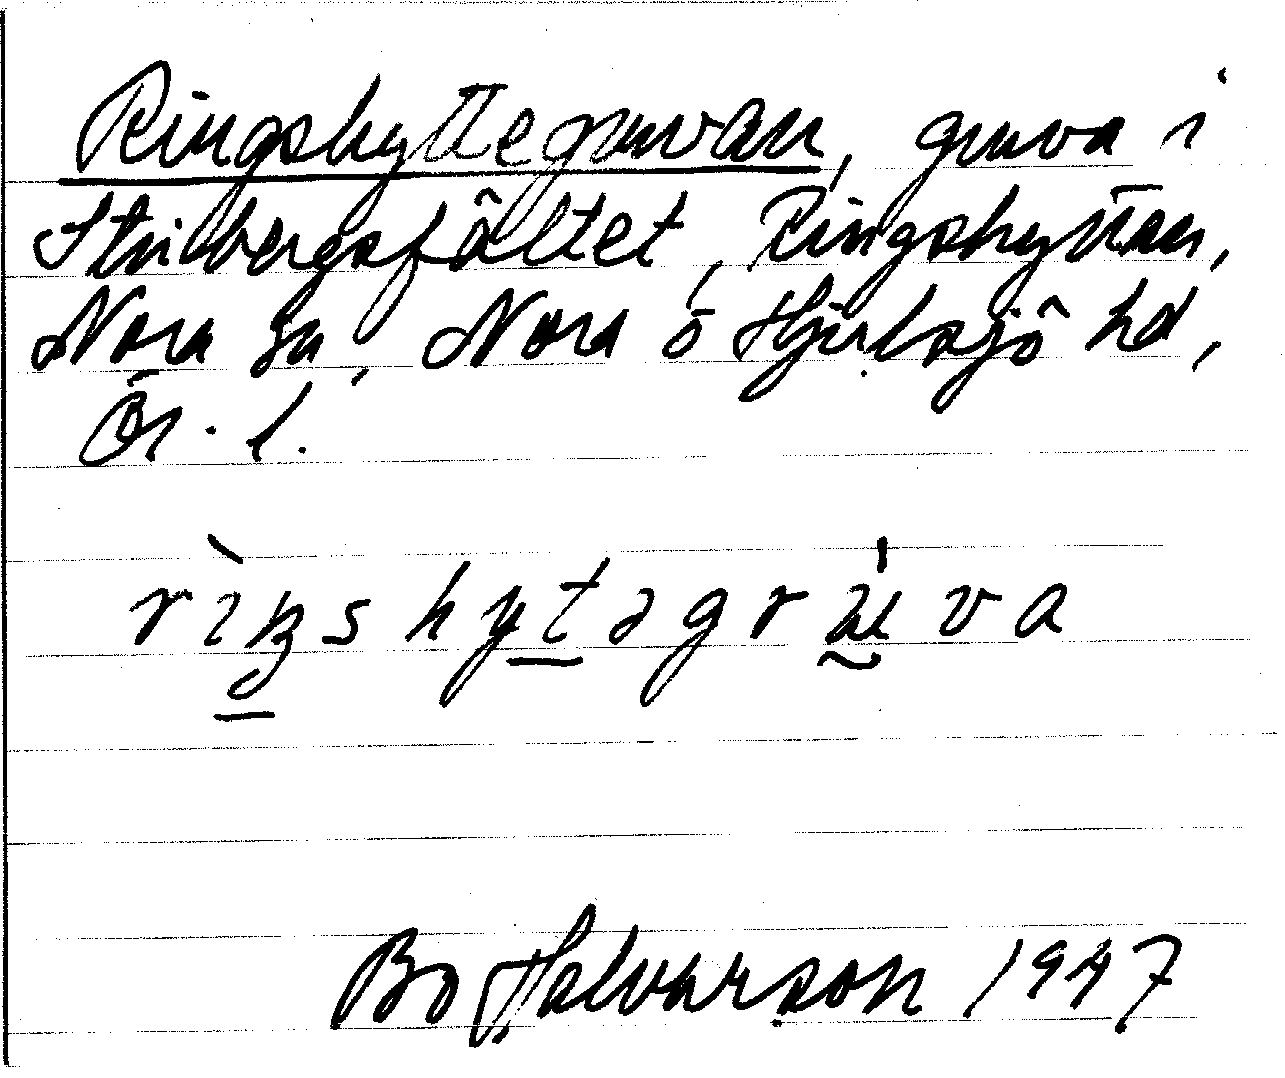 Ringshyttegruvan, gruva i
Stribergsfältet, Ringshyttan,
Nora sn, Nora o Hjulsjö hd,
Ör. l.
rìŋshytəgrʉ́va
Bo Halvarson 1947